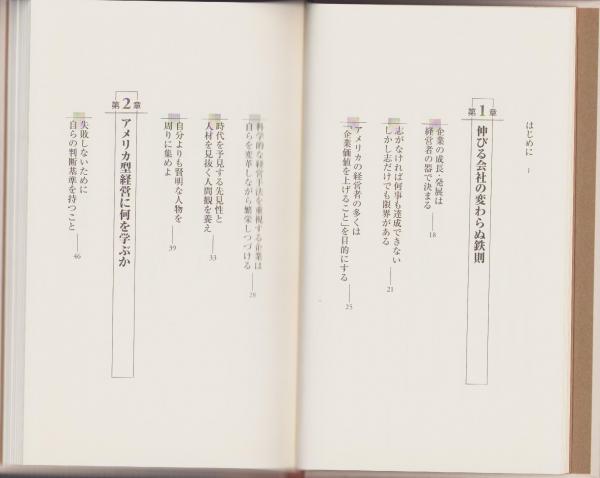 はじめに 1
第1章 伸びる会社の変わらぬ鉄則
企業の成長・発展は
経営者の器で決まる 18
志がなければ何事も達成できない
しかし志だけでも限界がある 21
アメリカの経営者の多くは
「企業価値を上げること」を目的にする 25
科学的な経営手法を重視する企業は
自らを変革しながら繁栄しつづける 28
時代を予見する先見性と
人材を見抜く人間観を養え 33
自分よりも賢明な人物を
周りに集めよ 39
第2章 アメリカ型経営に何を学ぶか
失敗しないために
自らの判断基準を持つこと 46